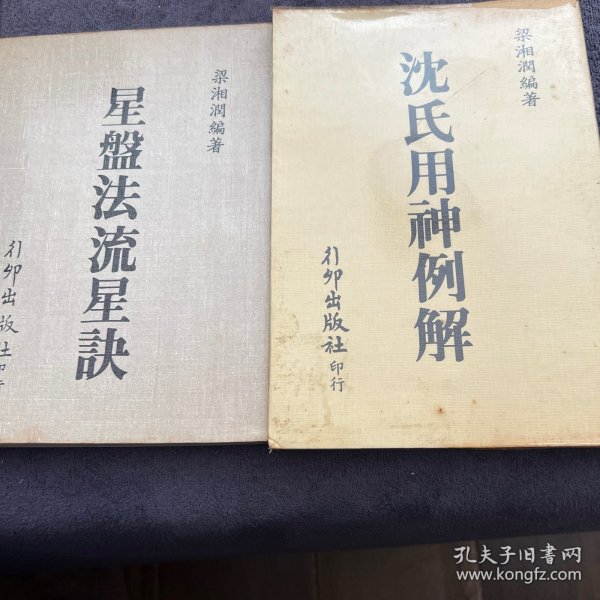 梁湘潤編著
星盤法流星訣
行卯出版社印行
梁湘潤編著
沈氏用神例解
行卯出版社印行
孔夫子旧书网
www.kongfz.com